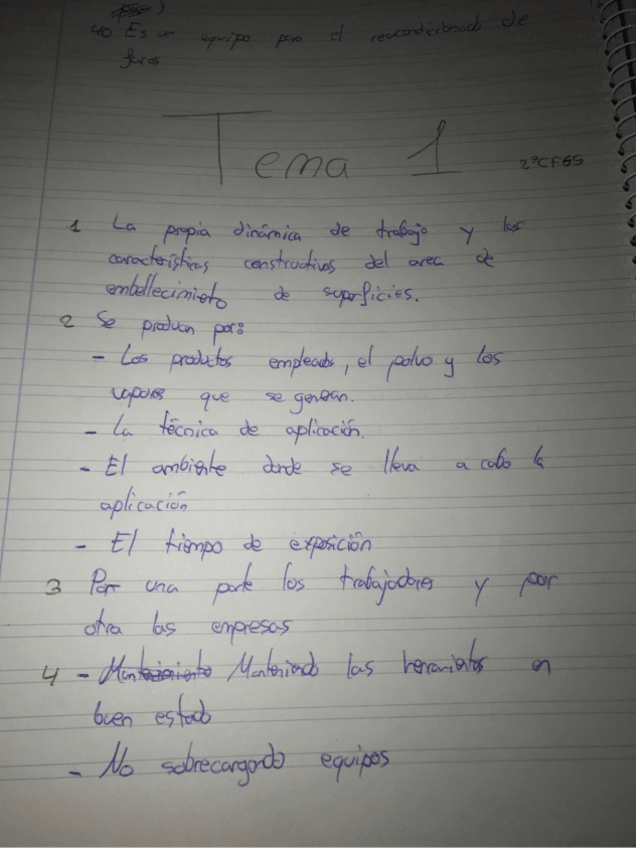 40 Es un equipo para el reacondicionado de
faros
Tema 1
2ºCFGS
1 La propia dinámica de trabajo y las
características constructivas del area de
embellecimiento de superficies.
2 Se producen por:
- Los productos empleados, el polvo y los
vapores que se generan.
- La técnica de aplicación.
- El ambiente donde se lleva a cabo la
aplicación
- El tiempo de exposición
3 Por una parte los trabajadores y por
otra las empresas
4 - Manteniendo las herramientas en
buen estado
- No sobrecargando equipos